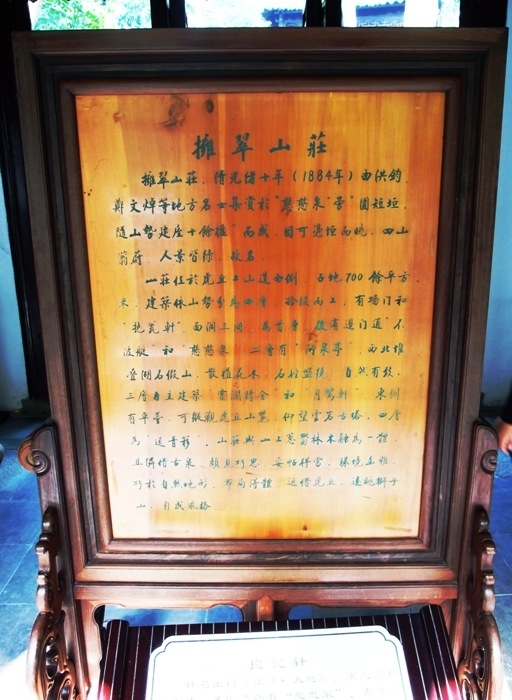 擁翠山莊
擁翠山莊，清光緒十年（1884年）由洪鈞、
鄭文焯等地方名士募資於"憨憨泉"旁"圍短垣，
隨山勢建屋十餘楹"而成，因可憑垣而眺，四山
蓊蔚，人景皆綠，故名。
山莊位於虎丘二山道西側，占地700餘平方
米，建築依山勢分為四層，拾級而上，有墻門和
"抱瓮軒"，面闊三間，為首層，後有邊門通"不
波艇"和"憨憨泉"。二層有"問泉亭"，西北堆
疊湖石假山，散植花木，石柱盤陡，自然有致。
三層自主建築"靈瀾精舍"和"月駕軒"，東側
有平臺，可縱觀虎丘山麓，仰望雲岩古塔。四層
為"送青簃"。山莊與山上蔥鬱林木融為一體，
且儕借古泉，頗見巧思，妥帖得宜，環境至雅，
巧於自然地形，布局得體，近借虎丘，遠眺獅子
山，自成風格。
抱瓮軒